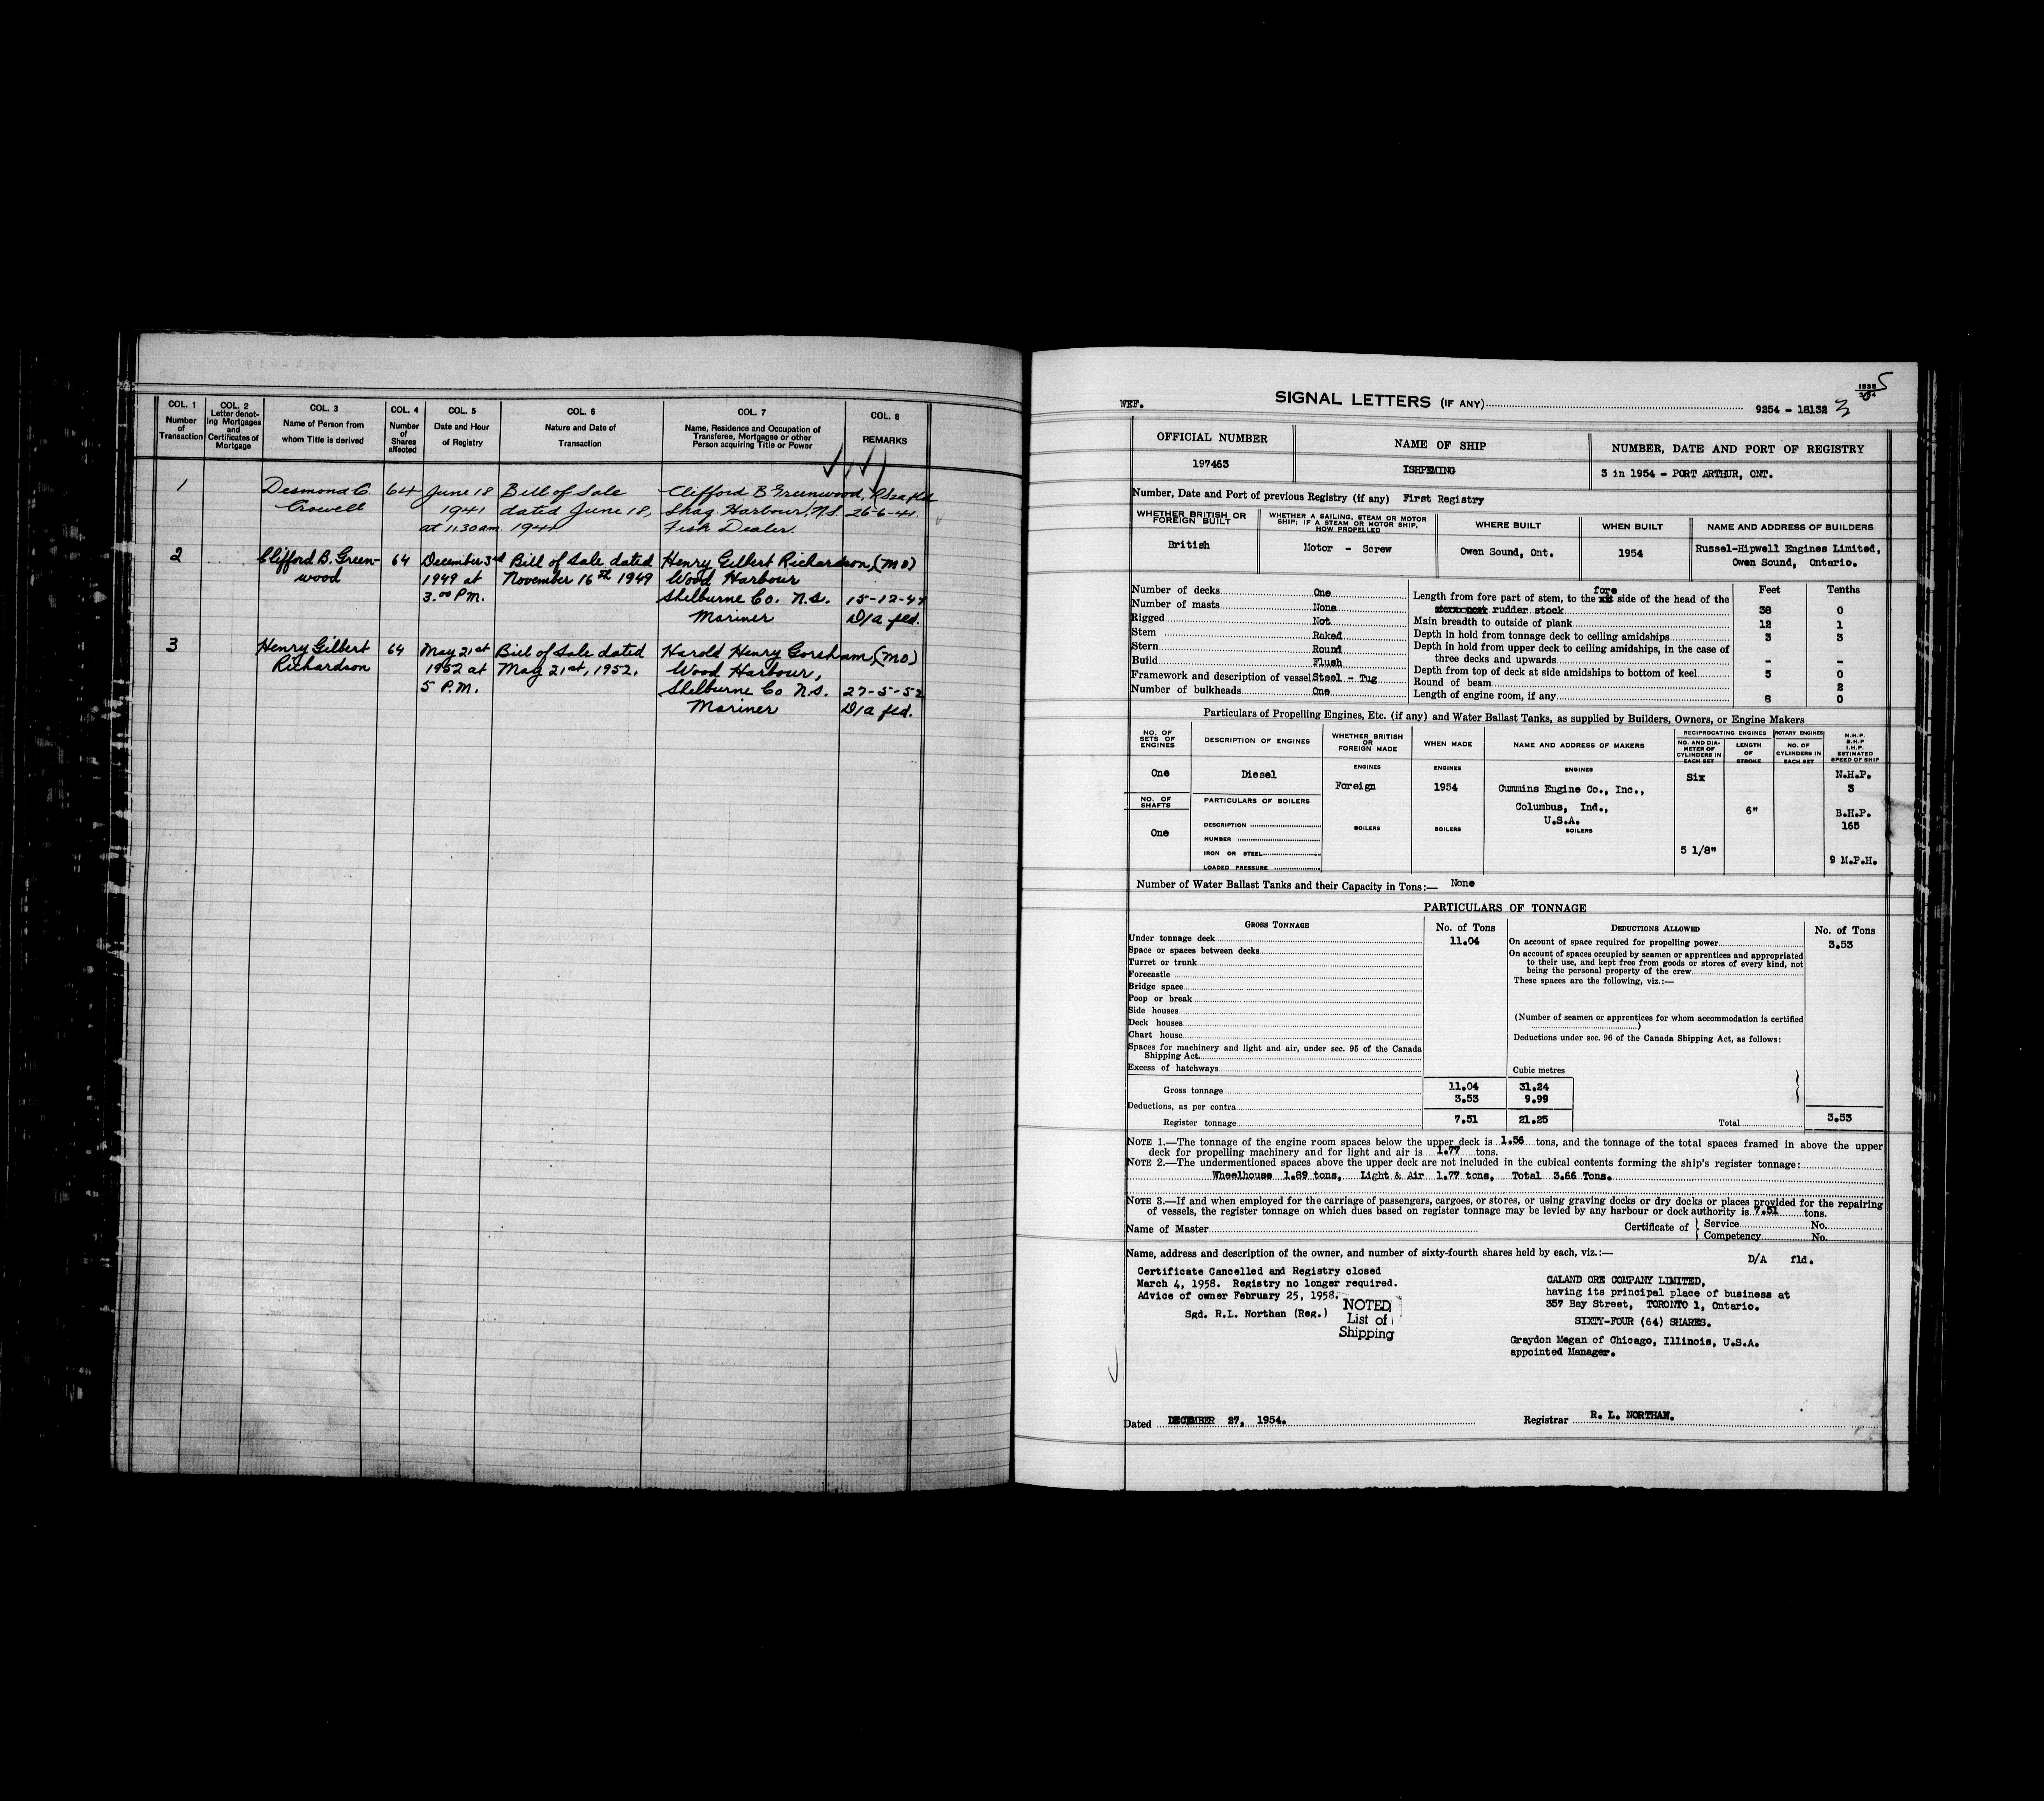 COL. 1
Number
of
Transaction
COL. 2
Letter denot-
ing Mortgages
and
Certificates of
Mortgage
COL. 3
Name of Person from
whom Title is derived
COL. 4
Number
of
Shares
affected
COL. 5
Date and Hour
of Registry
COL. 6
Nature and Date of
Transaction
COL. 7
Name, Residence and Occupation of
Transferee, Mortgagee or other
Person acquiring Title or Power
COL. 8
REMARKS
1 Desmond C. 64 June 18 Bill of Sale Clifford B Greenwood,
Crowell 1941 dated June 18, Shag Harbour, N.S. 26-6-41.
at 11.30 am. 1941. Fish Dealer.
2 Clifford B. Green- 64 December 3rd Bill of Sale dated Henry Gilbert Richardson, (MO)
wood 1949 at November 16th 1949 Wood Harbour
3.00 P.M. Shelburne Co. N.S. 15-12-49
Mariner D/a fld.
3 Henry Gilbert 64 May 21st Bill of Sale dated Harold Henry Goreham (MO)
Richardson 1952 at May 21st, 1952. Wood Harbour,
5 P.M. Shelburne Co N.S. 27-5-52
Mariner D/a fld.
WEF. SIGNAL LETTERS (IF ANY) 9254 - 18132 3
5
OFFICIAL NUMBER NAME OF SHIP NUMBER, DATE AND PORT OF REGISTRY
197463 ISHPEMING 3 in 1954 - PORT ARTHUR, ONT.
Number, Date and Port of previous Registry (if any) First Registry
WHETHER BRITISH OR
FOREIGN BUILT
WHETHER A SAILING, STEAM OR MOTOR
SHIP; IF A STEAM OR MOTOR SHIP,
HOW PROPELLED
WHERE BUILT WHEN BUILT NAME AND ADDRESS OF BUILDERS
British Motor - Screw Owen Sound, Ont. 1954 Russel-Hipwell Engines Limited,
Owen Sound, Ontario.
Number of decks One
Number of masts None
Rigged Not
Stem Raked
Stern Round
Build Flush
Framework and description of vessel Steel - Tug
Number of bulkheads One
Feet Tenths
fore
Length from fore part of stem, to the side of the head of the
rudder stock 38 0
Main breadth to outside of plank 12 1
Depth in hold from tonnage deck to ceiling amidships 3 3
Depth in hold from upper deck to ceiling amidships, in the case of
three decks and upwards - -
Depth from top of deck at side amidships to bottom of keel 5 0
Round of beam 2
Length of engine room, if any 8 0
Particulars of Propelling Engines, Etc. (if any) and Water Ballast Tanks, as supplied by Builders, Owners, or Engine Makers
NO. OF
SETS OF
ENGINES
DESCRIPTION OF ENGINES
WHETHER BRITISH
OR
FOREIGN MADE
WHEN MADE
NAME AND ADDRESS OF MAKERS
RECIPROCATING ENGINES
NO. AND DIA-
METER OF
CYLINDERS IN
EACH SET
LENGTH
OF
STROKE
ROTARY ENGINES
NO. OF
CYLINDERS IN
EACH SET
N.H.P.
B.H.P.
I.H.P.
ESTIMATED
SPEED OF SHIP
ENGINES ENGINES ENGINES
One Diesel Foreign 1954 Cummins Engine Co., Inc., Six N.H.P.
3
NO. OF
SHAFTS
PARTICULARS OF BOILERS
Columbus, Ind., 6" B.H.P.
U.S.A. 165
One
DESCRIPTION
BOILERS BOILERS BOILERS
NUMBER
IRON OR STEEL 5 1/8"
9 M.P.H.
LOADED PRESSURE
Number of Water Ballast Tanks and their Capacity in Tons:— None
PARTICULARS OF TONNAGE
GROSS TONNAGE No. of Tons DEDUCTIONS ALLOWED No. of Tons
Under tonnage deck 11.04
Space or spaces between decks
Turret or trunk
Forecastle
Bridge space
Poop or break
Side houses
Deck houses
Chart house
Spaces for machinery and light and air, under sec. 95 of the Canada
Shipping Act.
Excess of hatchways
On account of space required for propelling power 3.53
On account of spaces occupied by seamen or apprentices and appropriated
to their use, and kept free from goods or stores of every kind, not
being the personal property of the crew
These spaces are the following, viz.:—
(Number of seamen or apprentices for whom accommodation is certified
)
Deductions under sec. 96 of the Canada Shipping Act, as follows:
Cubic metres
Gross tonnage 11.04 31.24
Deductions, as per contra 3.53 9.99
Register tonnage 7.51 21.25 Total 3.53
NOTE 1.—The tonnage of the engine room spaces below the upper deck is 1.56 tons, and the tonnage of the total spaces framed in above the upper
deck for propelling machinery and for light and air is 1.77 tons.
NOTE 2.—The undermentioned spaces above the upper deck are not included in the cubical contents forming the ship's register tonnage:
Wheelhouse 1.89 tons, Light & Air 1.77 tons, Total 3.66 Tons.
NOTE 3.—If and when employed for the carriage of passengers, cargoes, or stores, or using graving docks or dry docks or places provided for the repairing
of vessels, the register tonnage on which dues based on register tonnage may be levied by any harbour or dock authority is 7.51 tons.
Name of Master Certificate of { Service No.
Competency No.
Name, address and description of the owner, and number of sixty-fourth shares held by each, viz.:—
D/A fld.
Certificate Cancelled and Registry closed
March 4, 1958. Registry no longer required.
Advice of owner February 25, 1958.
Sgd. R.L. Northan (Reg.)
NOTED
List of
Shipping
GALAND ORE COMPANY LIMITED,
having its principal place of business at
357 Bay Street, TORONTO 1, Ontario.
SIXTY-FOUR (64) SHARES.
Graydon Megan of Chicago, Illinois, U.S.A.
appointed Manager.
Dated DECEMBER 27, 1954. Registrar R. L. NORTHAN.